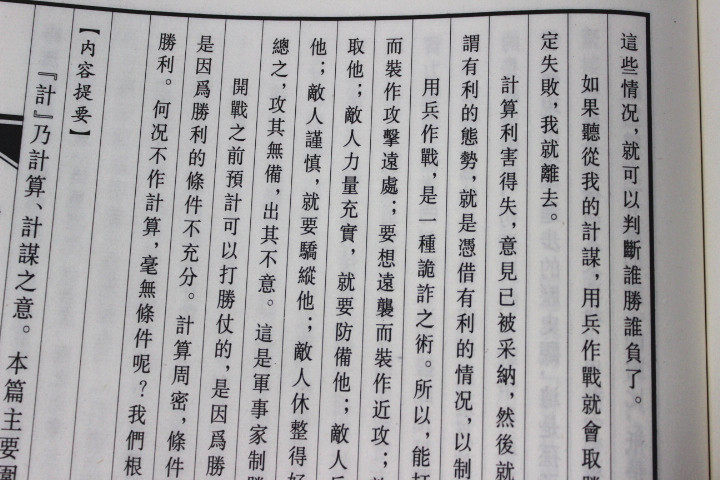 這些情况，就可以判斷誰勝誰負了。
如果聽從我的計謀，用兵作戰就會取勝
定失敗，我就離去。
計算利害得失，意見已被采納，然後就
謂有利的態勢，就是憑借有利的情况，以制
用兵作戰，是一種詭詐之術。所以，能打
而裝作攻擊遠處；要想遠襲而裝作近攻；
取他；敵人力量充實，就要防備他；敵人兵
他；敵人謹慎，就要驕縱他；敵人休整得好
總之，攻其無備，出其不意。這是軍事家制勝
開戰之前預計可以打勝仗的，是因爲勝
是因爲勝利的條件不充分。計算周密，條件
勝利。何况不作計算，毫無條件呢？我們根
【内容提要】
『計』乃計算、計謀之意。本篇主要圍